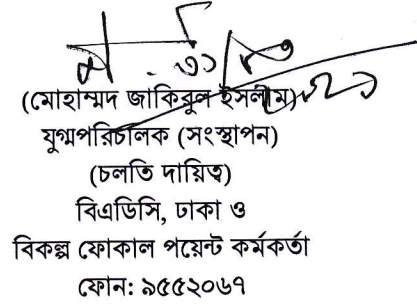 (মোহাম্মদ জাকিরুল ইসলাম)
যুগ্মপরিচালক (সংস্থাপন)
(চলতি দায়িত্ব)
বিএডিসি, ঢাকা ও
বিকল্প ফোকাল পয়েন্ট কর্মকর্তা
ফোন: ৯৫৫২০৬৭